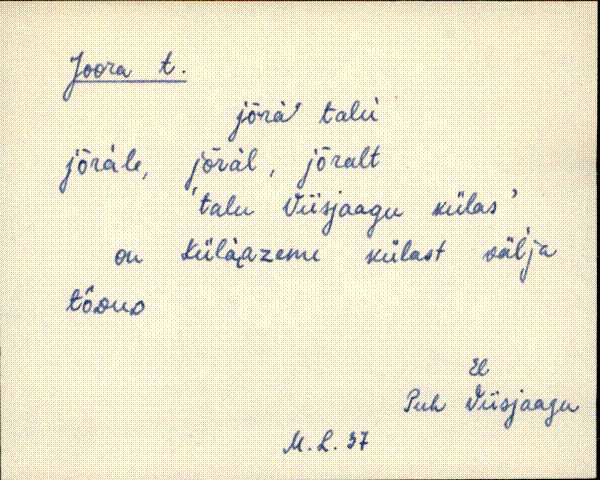 Joora t.
jōrà' talù
jōràle, jōràl, jōralt
'talu Viisjaagu külas'
on külàazeme külast väĺja
tôonò
El
Puh Viisjaagu
M. L. 37